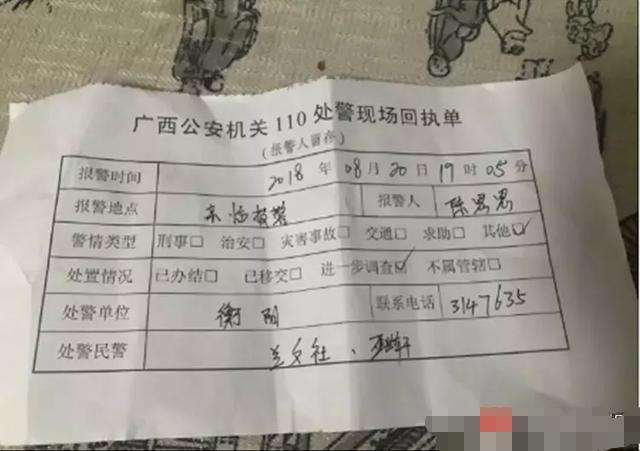 广西公安机关110处警现场回执单
(报警人留存)
报警时间 2018年08月20日19时05分
报警地点 报警人 陈思思
警情类型 刑事□ 治安□ 灾害事故□ 交通□ 求助□ 其他☑
处置情况 已办结□ 已移交□ 进一步调查☑ 不属管辖□
处警单位 衡阳 联系电话 3147635
处警民警